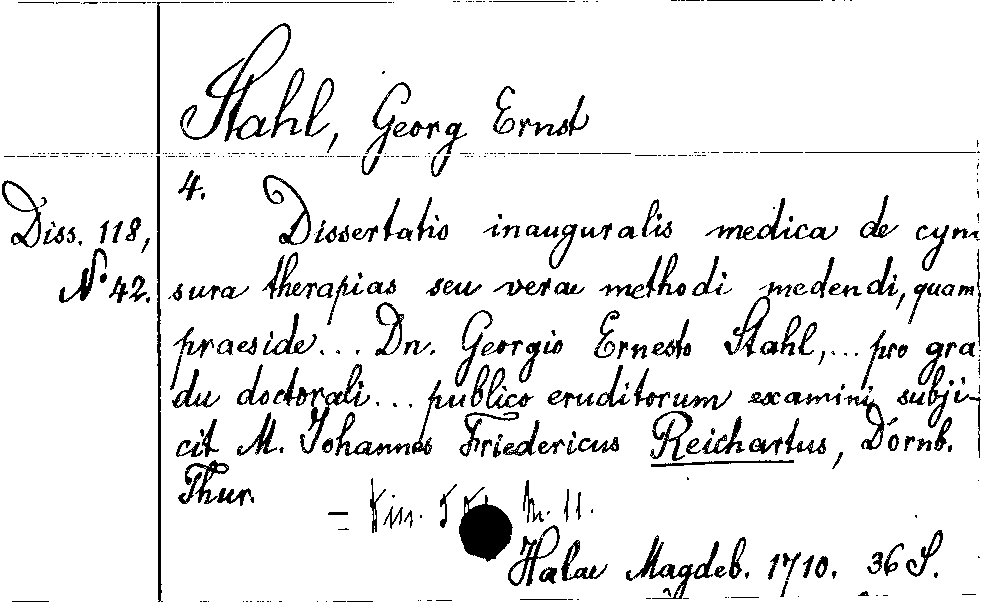 Stahl, Georg Ernst
4.
Diss. 118, Dissertatio inauguralis medica de cyn
No 42. sura therapias seu verae methodi medendi, quam
praeside... Dn. Georgio Ernesto Stahl,... pro gra
du doctorali... publico eruditorum examini subji-
cit M. Johannes Friedericus Reichartus, Dornb.
Thur.
= N. 11.
Halae Magdeb. 1710. 36 S.